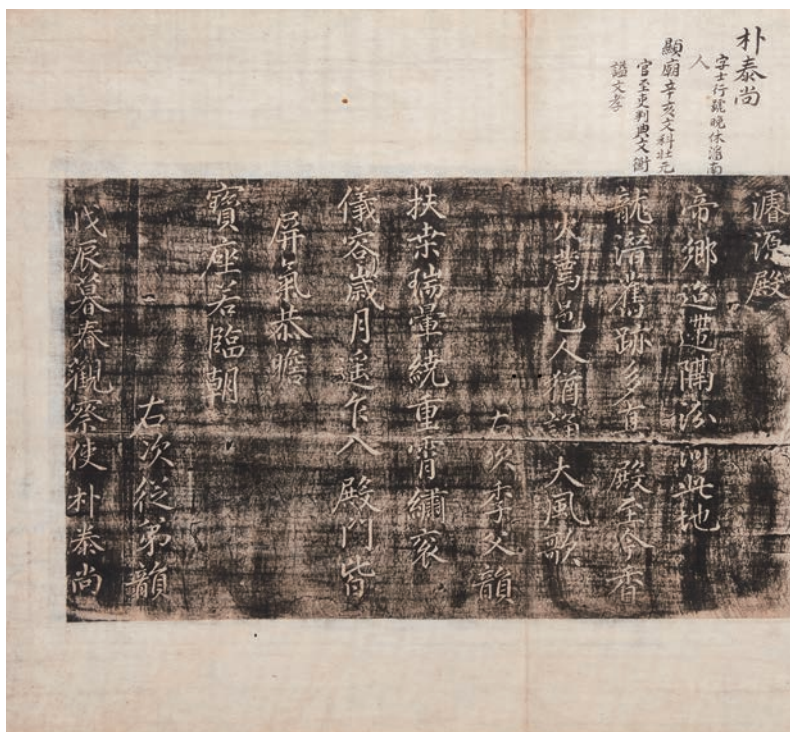 朴泰尚
字士行號晚休潘南
人
顯廟辛亥文科壯元
官至吏判典文衡
諡文孝
濬源殿
帝鄉迢遞隔汾河此地
龍潛舊跡多有 殿至今香
火薦邑人猶誦大風歌
右次季父韻
扶桑瑞暈繞重霄繡袞
儀容歲月遙乍入 殿門皆
屏氣恭瞻
寶座若臨朝
右次從弟韻
戊辰暮春觀察使朴泰尚